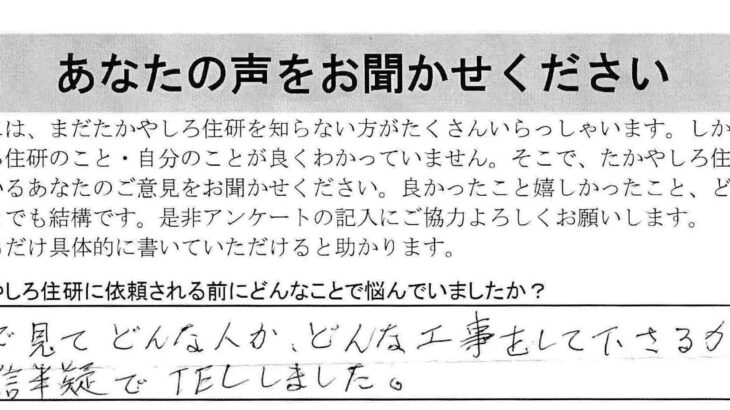 あなたの声をお聞かせください
は、まだたかやしろ住研を知らない方がたくさんいらっしゃいます。しか
住研のこと・自分のことが良くわかっていません。そこで、たかやしろ住
るあなたのご意見をお聞かせください。良かったこと嬉しかったこと、ど
でも結構です。是非アンケートの記入にご協力よろしくお願いします。
だけ具体的に書いていただけると助かります。
やしろ住研に依頼される前にどんなことで悩んでいましたか？
で見て どんな人か、どんな工事をして下さるか
信半疑で TELしました。